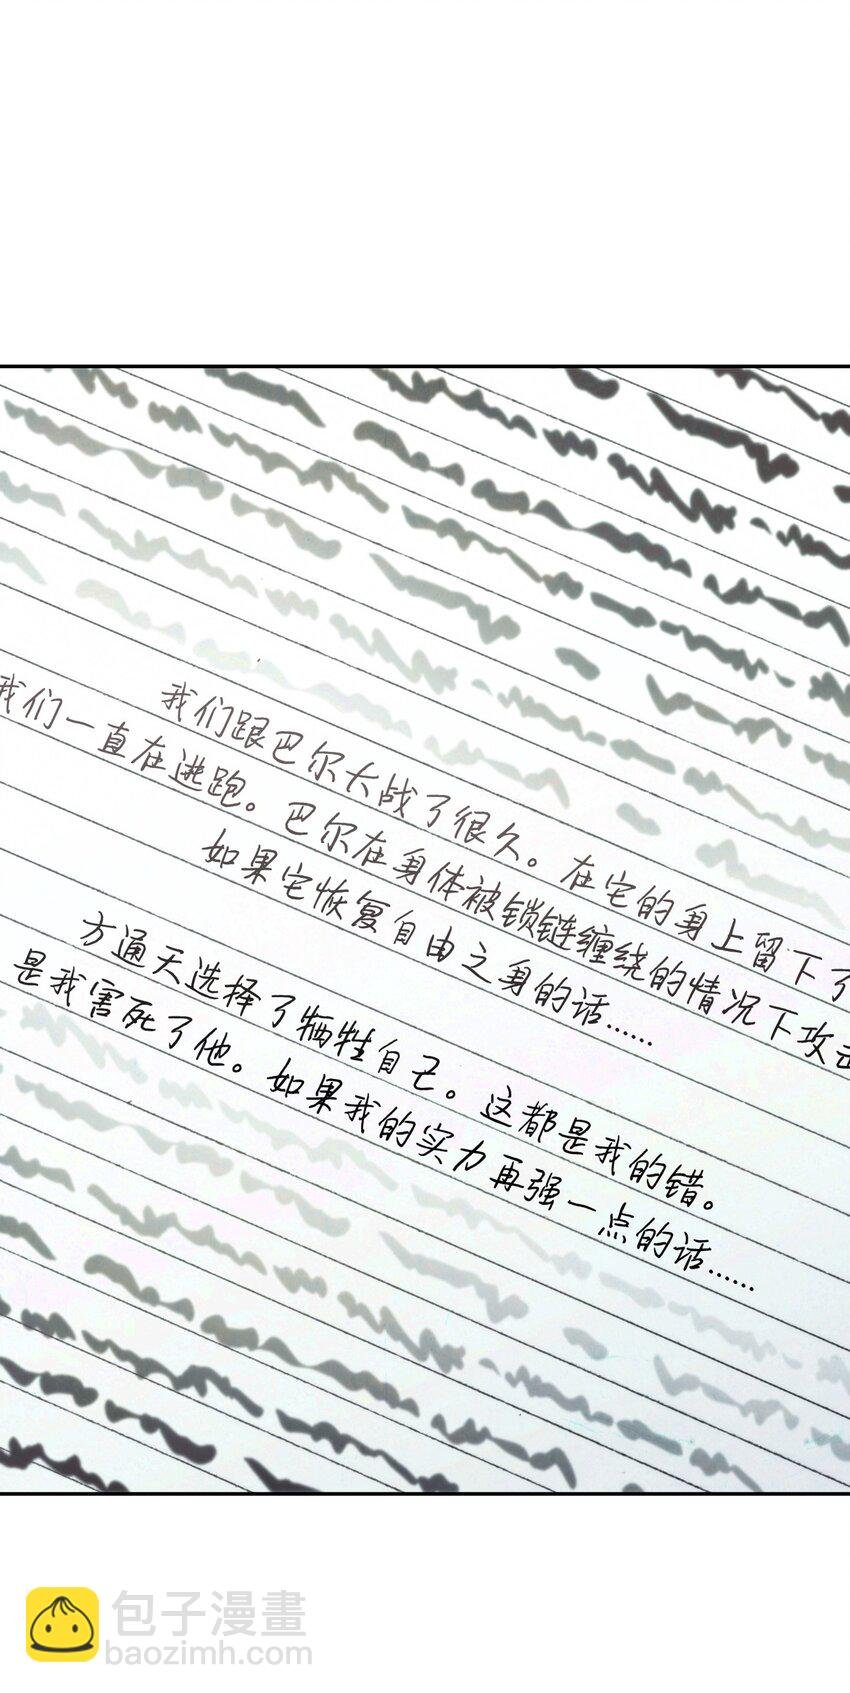 我们跟巴尔大战了很久。在它的身上留下了
我们一直在逃跑。巴尔在身体被锁链缠绕的情况下攻击
如果它恢复自由之身的话……
方通天选择了牺牲自己。这都是我的错。
是我害死了他。如果我的实力再强一点的话……
包子漫畫
baozimh.com